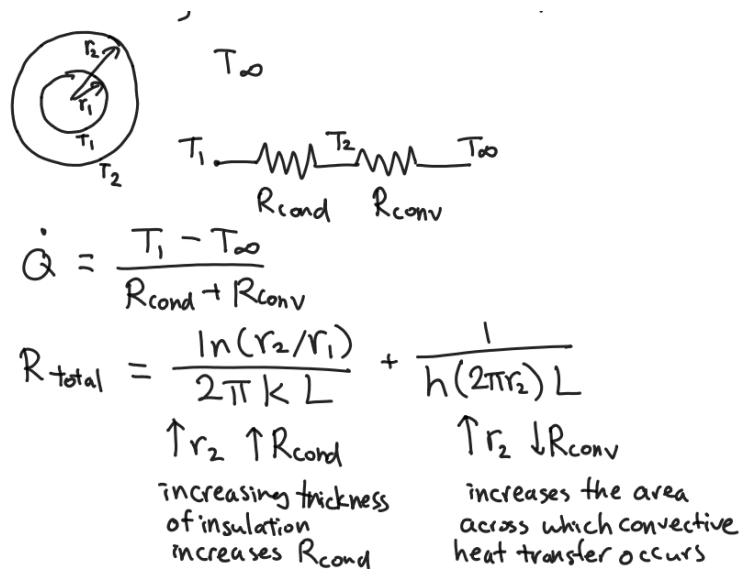 r₂
r₁
T₁
T₂
T∞
T₁ T₂ T∞
Rcond Rconv
Q̇ = (T₁ − T∞) / (Rcond + Rconv)
Rtotal = ln(r₂/r₁) / (2πkL) + 1 / (h(2πr₂)L)
↑r₂ ↑Rcond
increasing thickness
of insulation
increases Rcond
↑r₂ ↓Rconv
increases the area
across which convective
heat transfer occurs